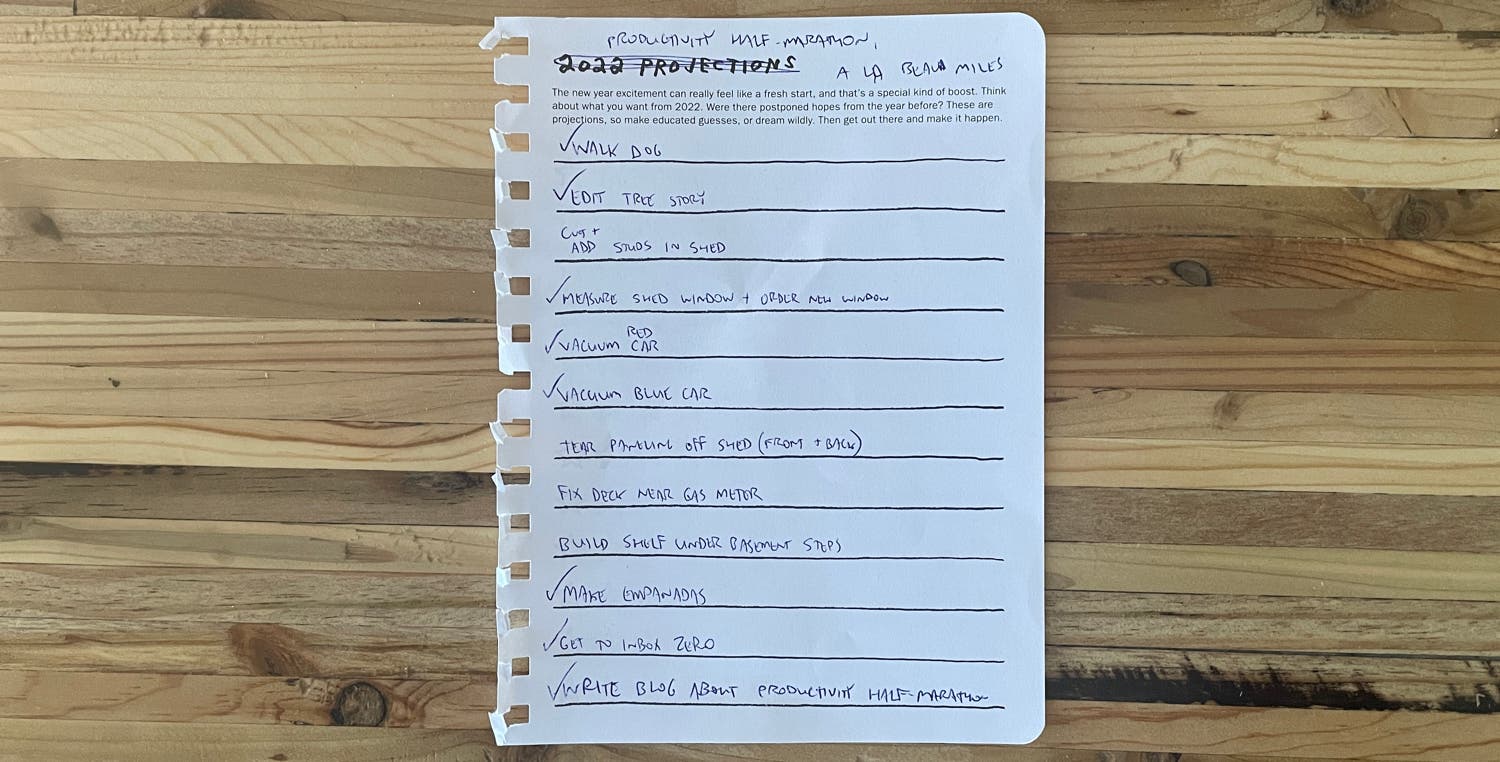 PRODUCTIVITY HALF-MARATHON,
2022 PROJECTIONS
A LA BEAU MILES
The new year excitement can really feel like a fresh start, and that's a special kind of boost. Think
about what you want from 2022. Were there postponed hopes from the year before? These are
projections, so make educated guesses, or dream wildly. Then get out there and make it happen.
✓WALK DOG
✓EDIT TREE STORY
CUT +
ADD STUDS IN SHED
✓MEASURE SHED WINDOW + ORDER NEW WINDOW
RED
✓VACUUM CAR
✓VACUUM BLUE CAR
TEAR PANELING OFF SHED (FRONT + BACK)
FIX DECK NEAR GAS METER
BUILD SHELF UNDER BASEMENT STEPS
✓MAKE EMPANADAS
✓GET TO INBOX ZERO
✓WRITE BLOG ABOUT PRODUCTIVITY HALF-MARATHON